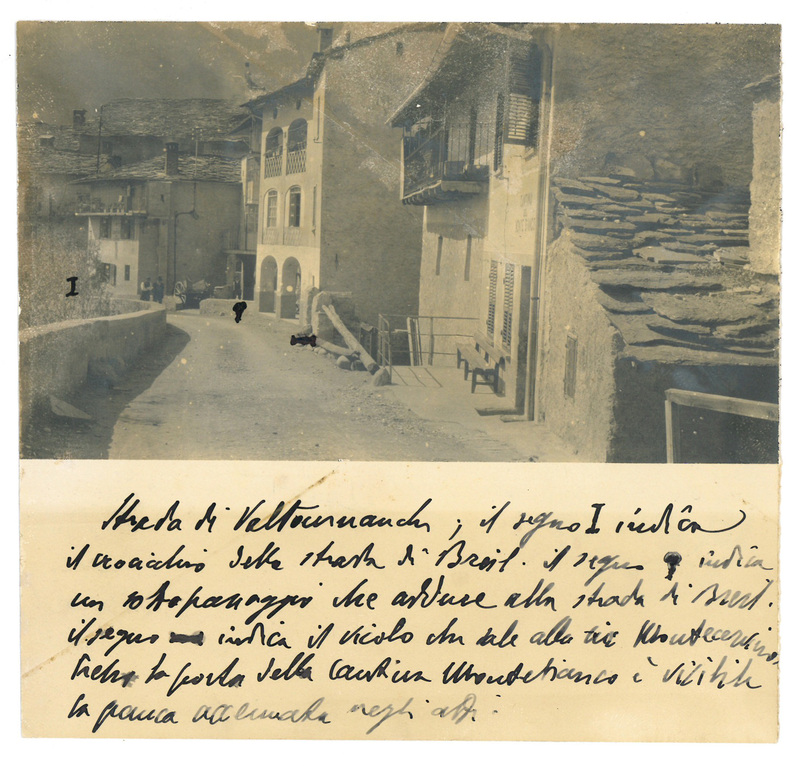 I
Strada di Valtournanche ; il segno I indica
il crocicchio della strada di Breil. il segno indica
un sottopassaggio che adduce alla strada di Breil.
il segno indica il vicolo che sale alla via Montecervino.
la porta della Cantina Montebianco è visibile
la panca accennata negli atti.